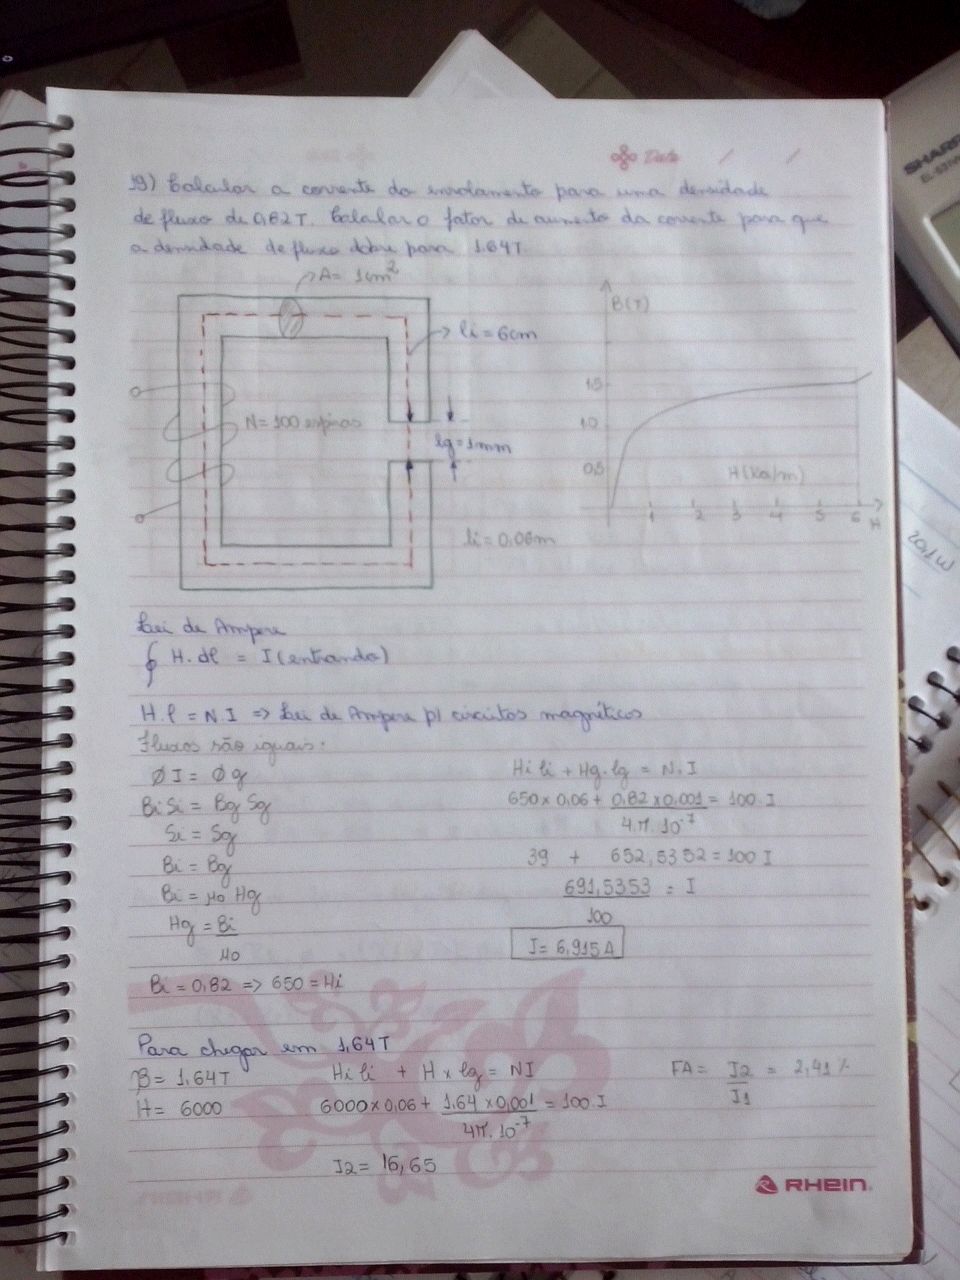 19) Calcular a corrente do enrolamento para uma densidade
de fluxo de 0,82T. Calcular o fator de aumento da corrente para que
a densidade de fluxo dobre para 1.64T
Date / /
SHARP
A= 1cm²
li = 6cm
N=100 espiras
lg=1mm
li=0,06m
B(T)
1.5
1.0
0.5
H(Ka/m)
1 2 3 4 5 6 H
Lei de Ampere
∮ H.dl = I(entrando)
H.l = N.I => Lei de Ampere p/ circuitos magnéticos
Fluxos são iguais:
ØI = Øg
BiSi = BgSg
Si = Sg
Bi = Bg
Bi = μo Hg
Hg = Bi
μo
Bi = 0,82 => 650 = Hi
Hili + Hg.lg = N.I
650x0,06 + 0,82x0,001 = 100.I
4.π.10⁻⁷
39 + 652,5352 = 100 I
691,5353 = I
100
I= 6,915A
Para chegar em 1,64T
B= 1,64T
H= 6000
Hili + Hxlg = NI
6000x0,06+ 1,64x0,001 = 100.I
4π.10⁻⁷
I2= 16,65
FA= I2 = 2,41 %
I1
RHEIN